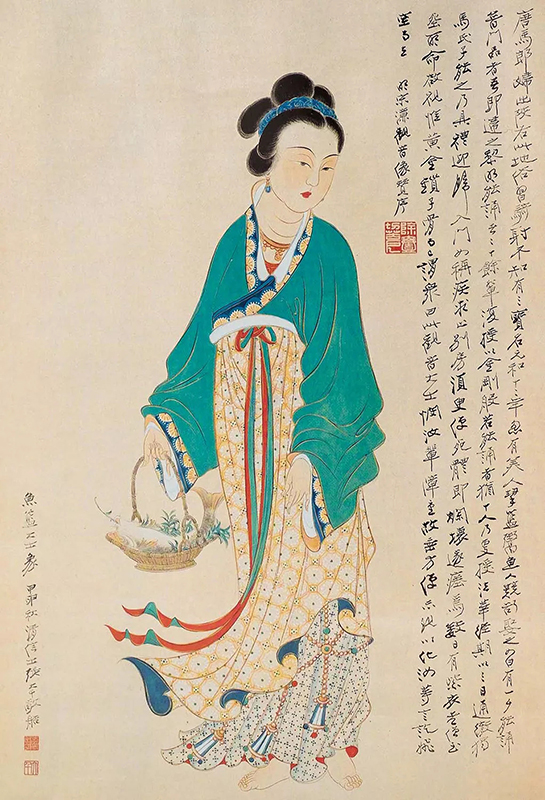 唐馬郎婦出陝右此地俗習騎射不知有三寶名元和十二年忽有美人挈籃鬻魚人競欲娶之曰有一夕能誦
普門品者吾即適之黎明能誦者二十餘輩復授以金剛般若能誦者猶十人乃更授法華經期以三日通徹獨
馬氏子能之乃具禮迎歸入門女稱疾求止別房須臾便死體即爛壞遂瘞焉數日有紫衣老僧至
塟所命啟視惟黃金鎖子骨謂眾曰此觀音大士憫汝輩障重故垂方便示現以化汝等言訖飛
空而去 明宋濂觀音像贊序
魚籃大士象
甲申秋清信士張大千敬